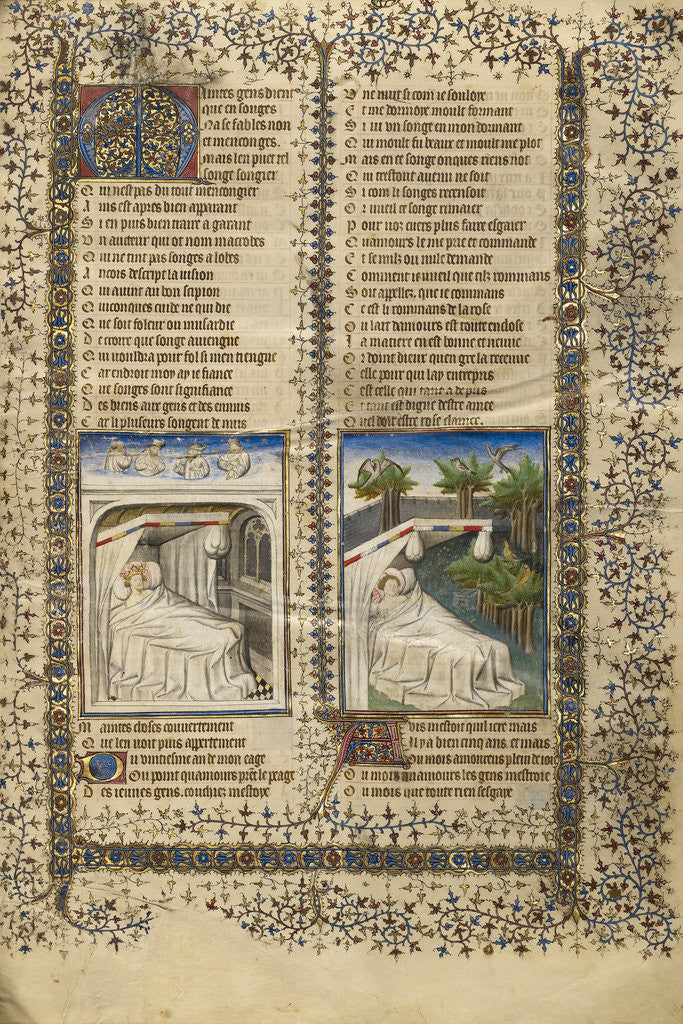 Maintes gens dient
que en songes
Na se fables non
et menconges.
mais len puet tel
songe songier
Qui nest pas du tout mencongier
Ains est apres bien apparant
Si en puis bien traire a garant
Un aucteur qui ot nom macrobes
Qui ne tint pas songes a lobes
Ancois descript la vision
Qui avint au bon scipion
Quiconques cuide ne qui die
Que soit foleur ou musardie
De croire que songe aviengne
Qui vouldra pour fol si men tiengne
Car endroit moy ay ie fiance
Que songes sont signifiance
Des biens aux gens et des ennuis
Car li pluseurs songent de nuis
Maintes choses couvertement
Que len voit puis apertement
Ou vintiesme an de mon eage
Ou point quamours prent le peage
Des ieunes gens. couchiez mestoye
Une nuit si com ie souloye
Et me dormoye moult forment
Si vi un songe en mon dormant
Qui moult fu beaux et moult me plot
Mais en ce songe onques riens not
Qui trestout avenu ne soit
Si com li songes recensoit
Or vueil ce songe rimaier
Pour voz cuers plus faire esgaier
Quamours le me prie et commande
Et se nulz ou nule demande
Comment ie vueil que cilz rommans
Soit appellez, que ie commans
Ce est li rommans de la rose
Ou lart damours est toute enclose
La matiere en est bonne et neuve
Or doint dieux quen gre la recoive
Celle pour qui lay entrepris
Cest celle qui tant a de pris
Et tant est digne destre amee
Quel doit estre rose clamee.
Avis mestoit quil iere mais
Il y a bien cinq ans et mais
Ou mois amoureux plein de ioie
Ou mois quamours les gens mestroie
Ou mois que toute rien sesgaye